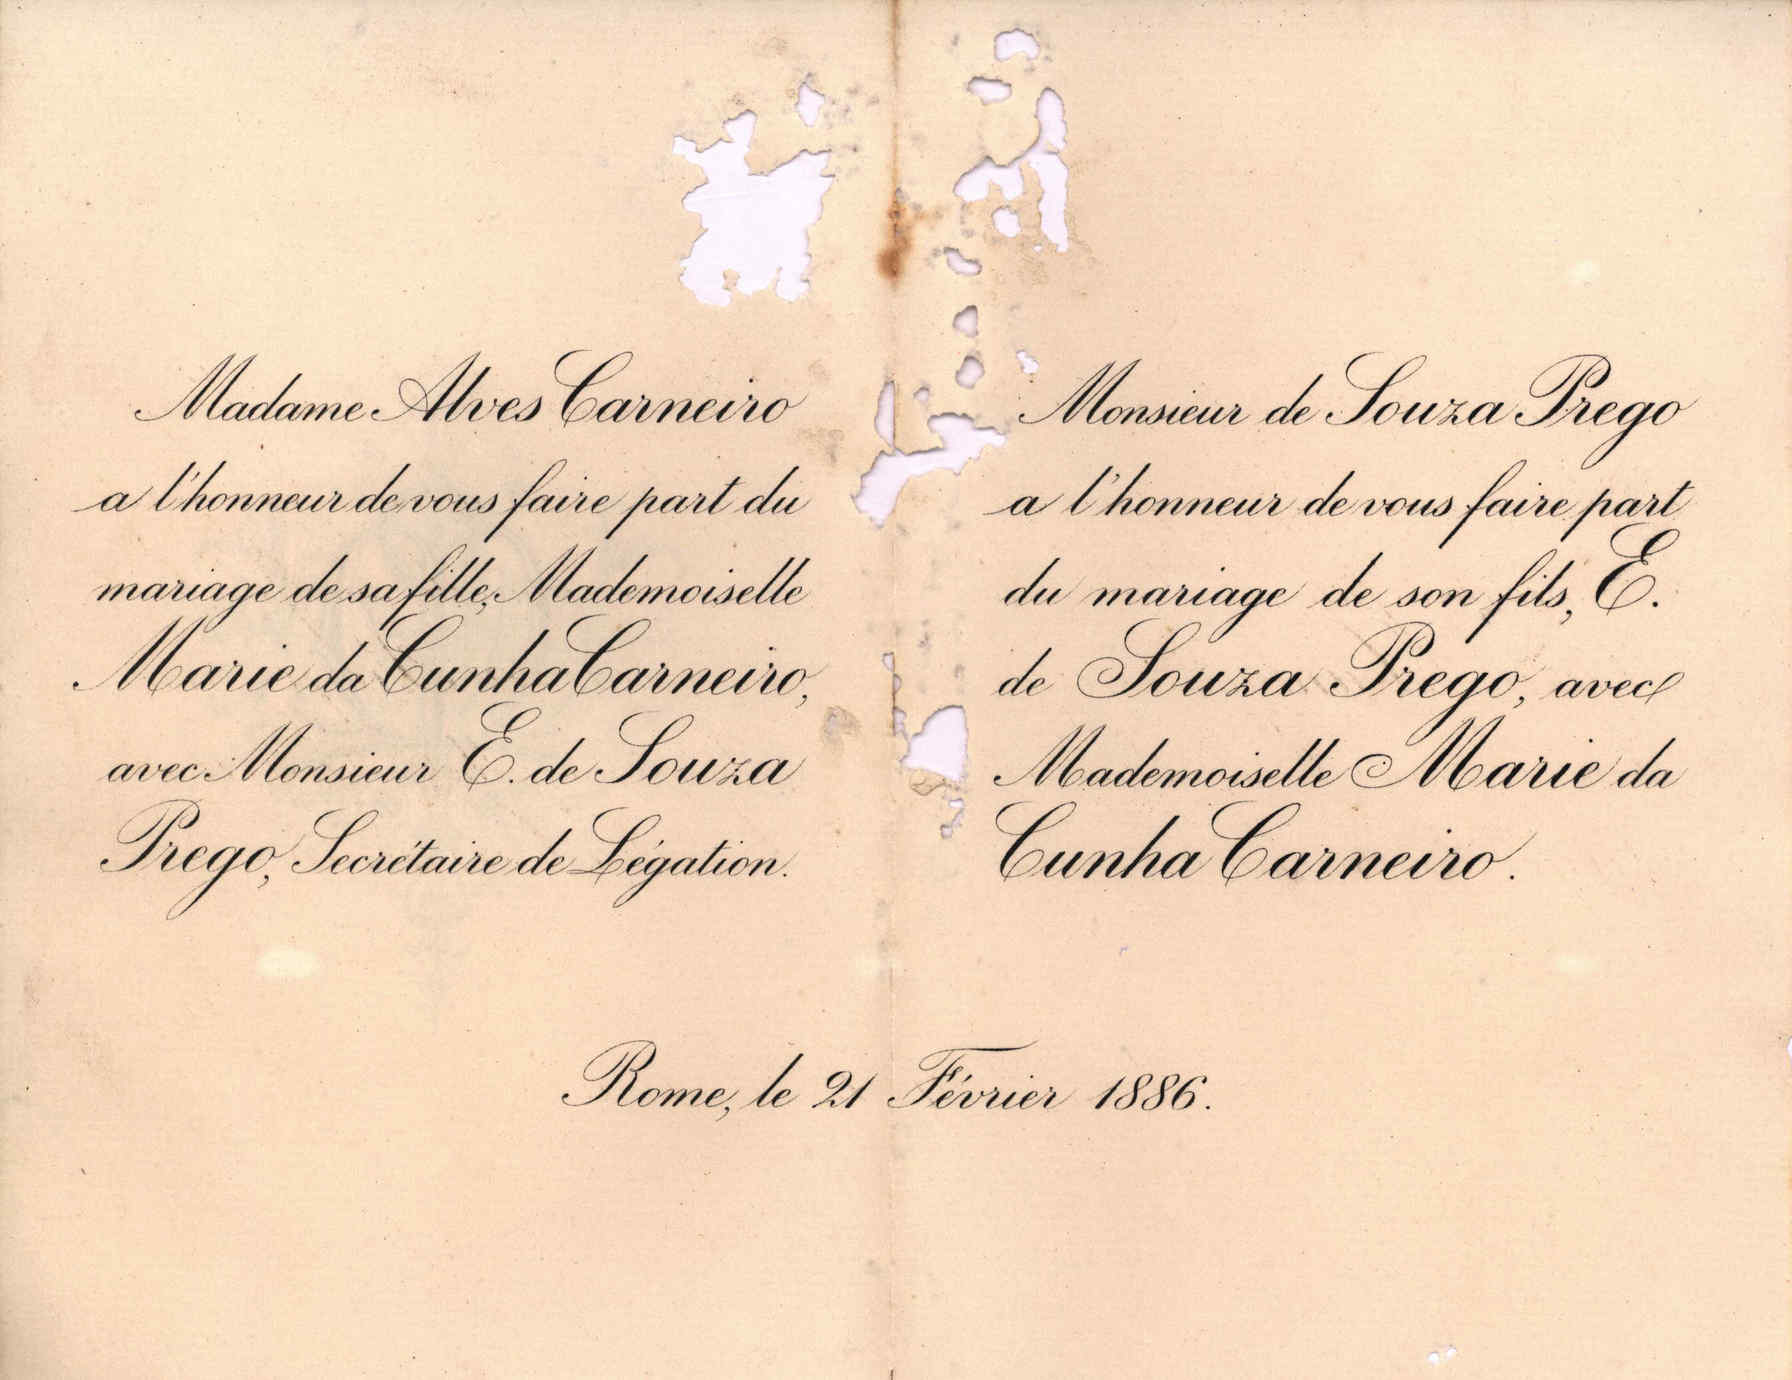 Madame Alves Carneiro
a l'honneur de vous faire part du
mariage de sa fille, Mademoiselle
Marie da Cunha Carneiro,
avec Monsieur E. de Souza
Prego, Secrétaire de Légation.
Monsieur de Souza Prego
a l'honneur de vous faire part
du mariage de son fils, E.
de Souza Prego, avec
Mademoiselle Marie da
Cunha Carneiro.
Rome, le 21 Février 1886.